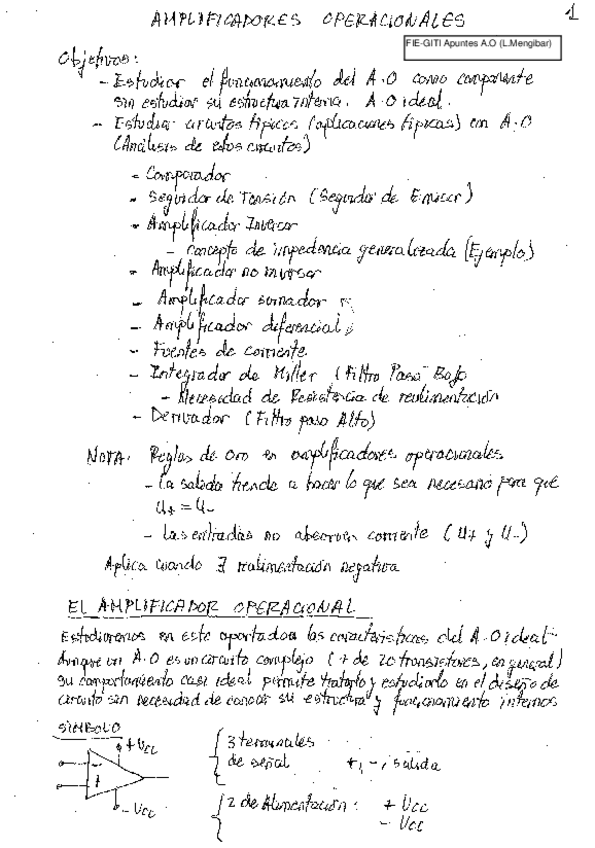 AMPLIFICADORES OPERACIONALES
1
FIE-GITI Apuntes A.O (L.Mengibar)
Objetivos:
- Estudiar el funcionamiento del A.O como componente
sin estudiar su estructura interna. A.O ideal.
- Estudiar circuitos típicos (aplicaciones típicas) con A.O
(Análisis de estos circuitos)
- Comparador
- Seguidor de Tensión (Seguidor de Emisor)
- Amplificador Inversor
- Concepto de impedancia generalizada (Ejemplo)
- Amplificador no inversor
- Amplificador sumador
- Amplificador diferencial
- Fuentes de corriente
- Integrador de Miller (Filtro Paso Bajo
- Necesidad de Resistencia de realimentación
- Derivador (Filtro paso Alto)
NOTA: Reglas de oro en amplificadores operacionales
- La salida tiende a hacer lo que sea necesario para que
U+ = U-
- Las entradas no absorven corriente (U+ y U-)
Aplica cuando ∃ realimentación negativa
EL AMPLIFICADOR OPERACIONAL
Estudiaremos en este apartado las características del A.O ideal
Aunque un A.O es un circuito complejo (+ de 20 transistores, en general)
su comportamiento casi ideal permite tratarlo y estudiarlo en el diseño de
circuito sin necesidad de conocer su estructura y funcionamiento internos
SÍMBOLO
+ Vcc
- Vcc
3 terminales
de señal +, -, salida
2 de Alimentación: + Vcc
- Vcc